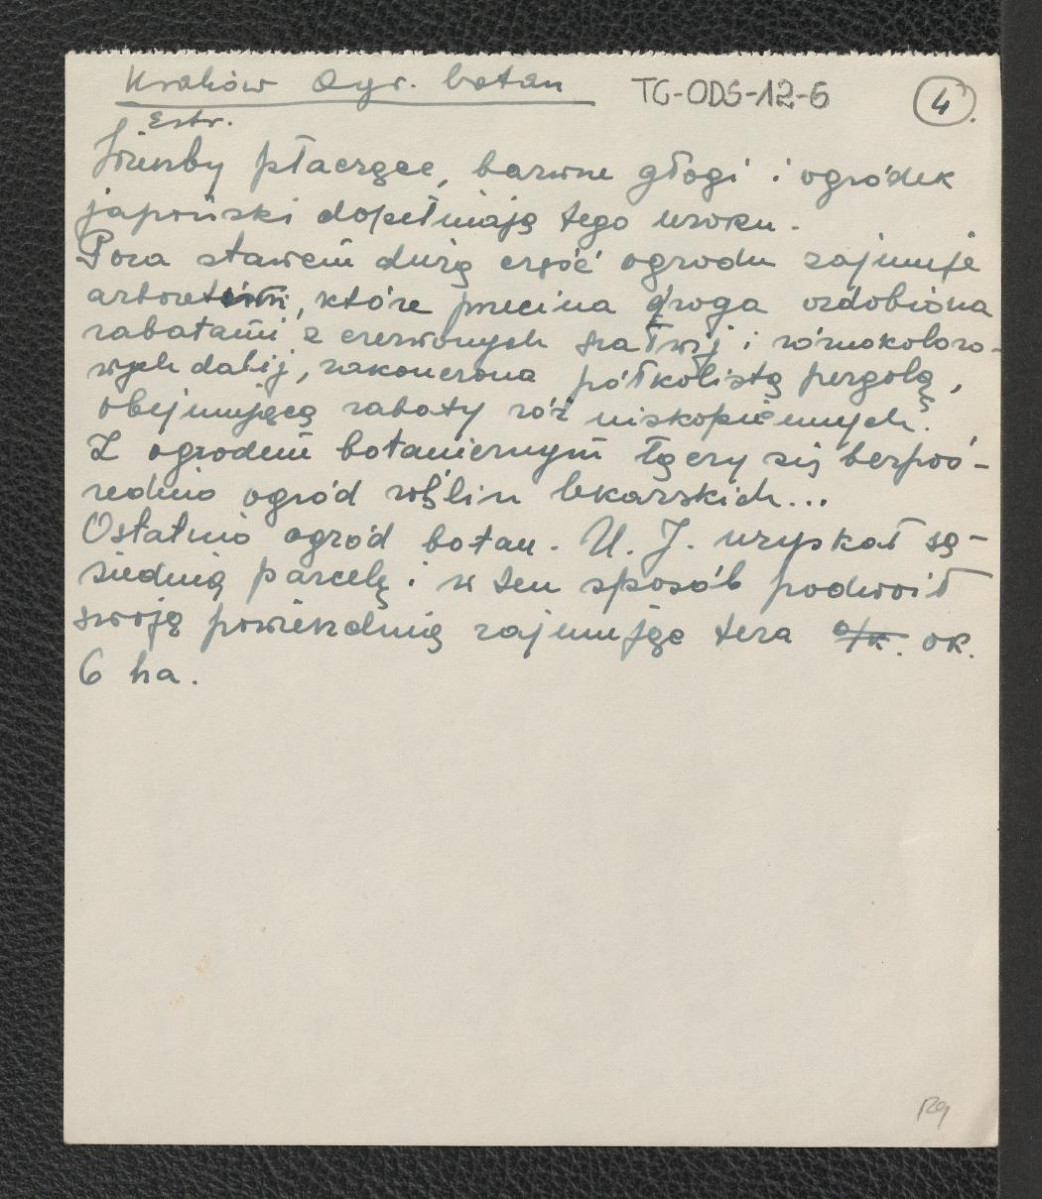 Kraków Ogr. botan TG-ODS-12-6 4
Estr.
Wierzby płaczące, barwne głogi i ogródek
japoński dopełniają tego uroku.
Poza stawem dużą część ogrodu zajmuje
arboretum, które przecina droga ozdobiona
rabatami z czerwonych szałwij i różnokoloro-
wych dalij, zakończona półkolistą pergolą,
obejmującą rabaty róż niskopiennych.
Z ogrodem botanicznym łączy się bezpoś-
rednio ogród roślin lekarskich...
Ostatnio ogród botan. U. J. uzyskał są-
siednią parcelę i w ten sposób podwoił
swoją powierzchnię zajmując tera ok.
6 ha.
129